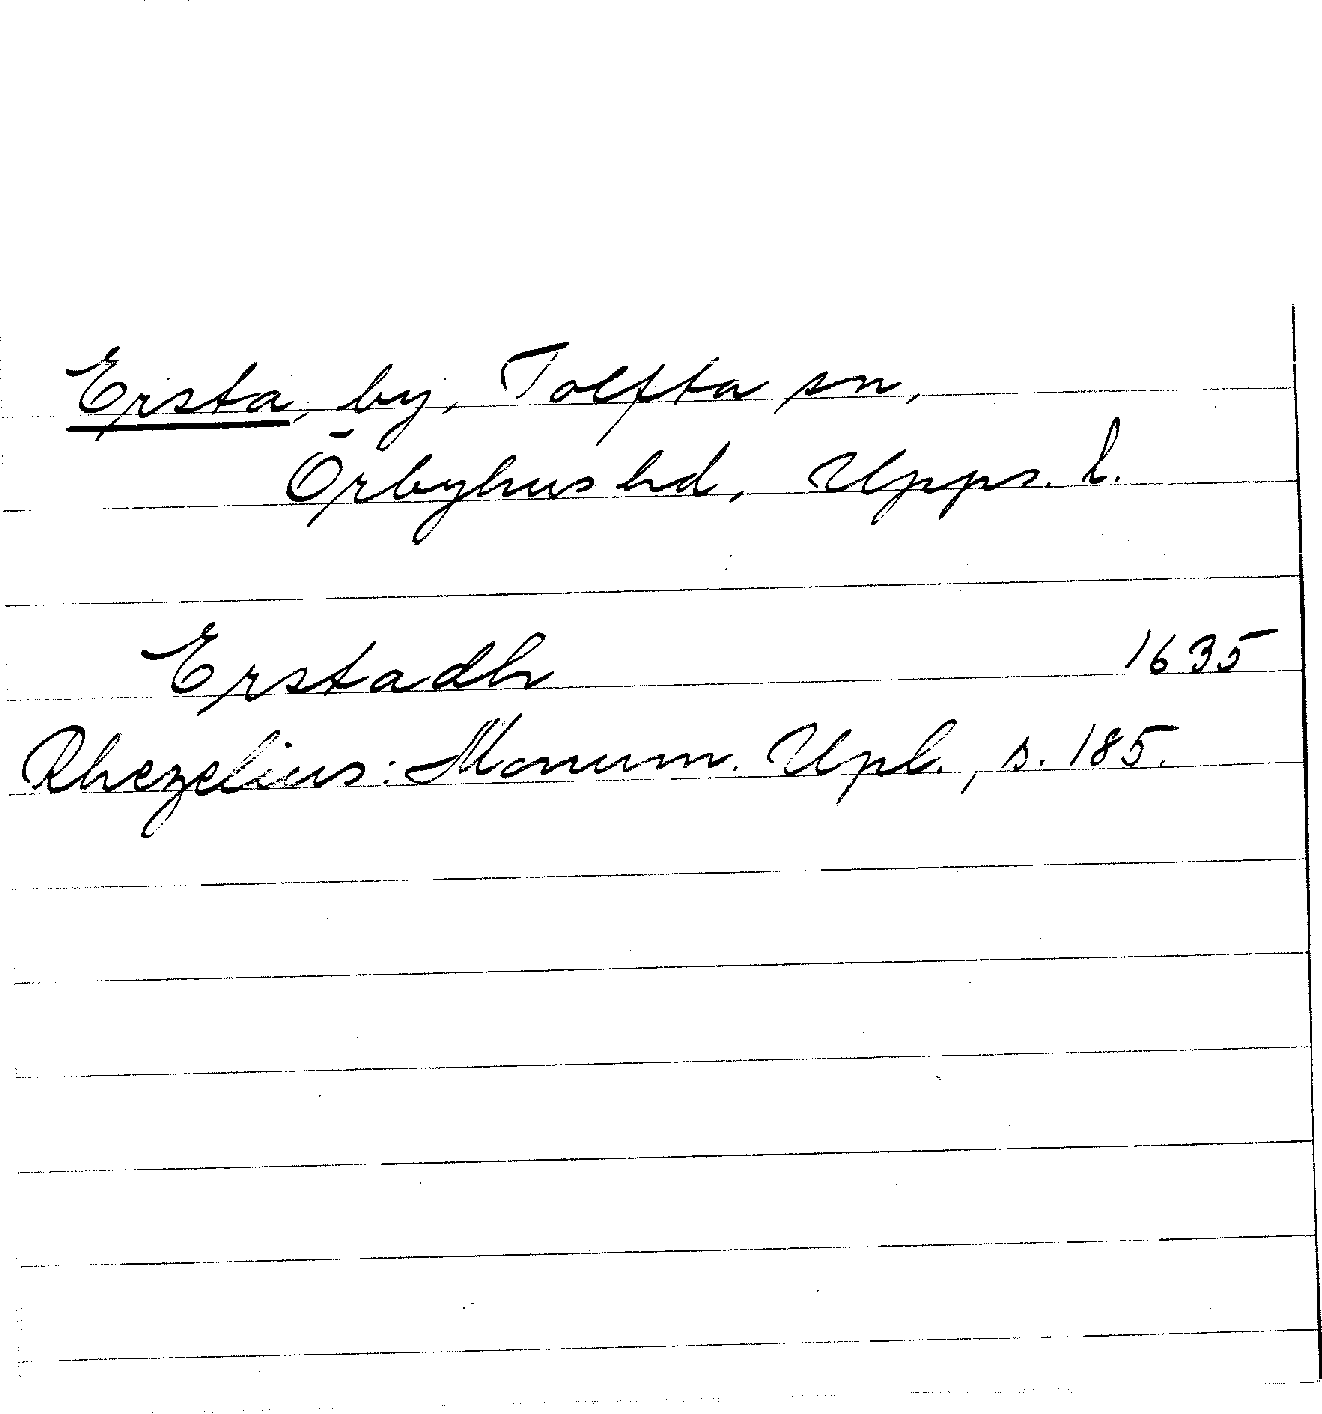 Ersta, by, Tolfta sn,
Örbyhus hd, Upps. l.
Erstadh 1635
Rhezelius: Monum. Upl., s. 185.